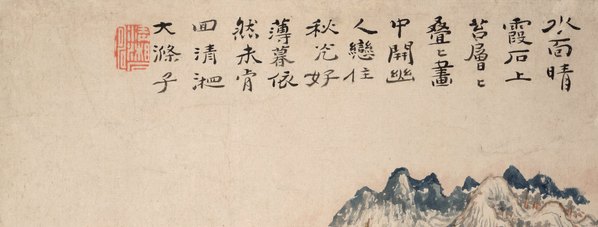 水面晴
霞石上
苔層〻
疊〻畫
中開幽
人戀住
秋光好
薄暮依
然未肯
囬清湘
大滌子